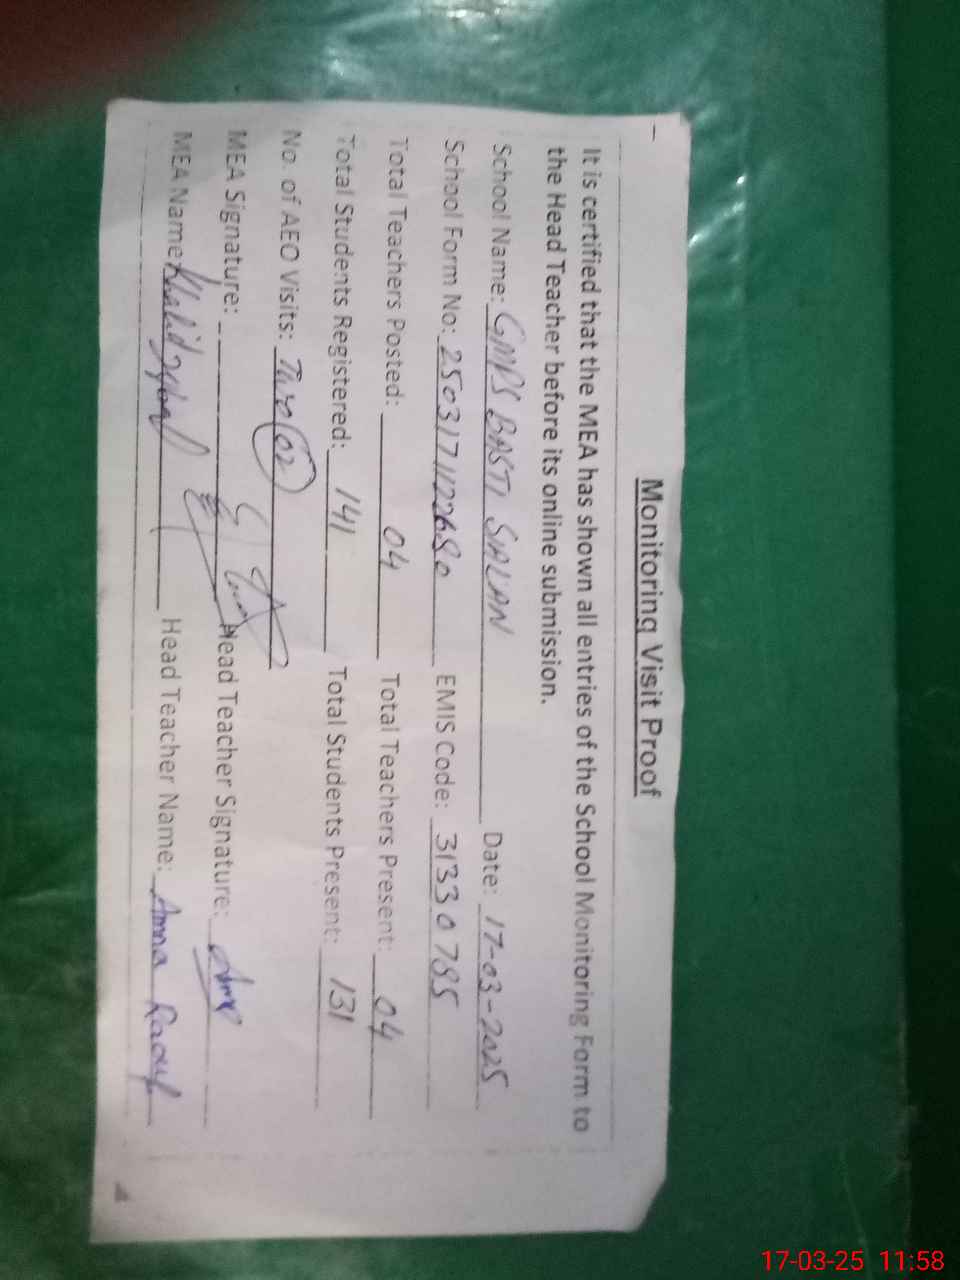 Monitoring Visit Proof
It is certified that the MEA has shown all entries of the School Monitoring Form to
the Head Teacher before its online submission.
School Name: GMPS BASTI SIALAN Date: 17-03-2025
School Form No: 2503171122680 EMIS Code: 31330785
Total Teachers Posted: 04 Total Teachers Present: 04
Total Students Registered: 141 Total Students Present: 131
No. of AEO Visits: Two (02)
MEA Signature: Head Teacher Signature:
MEA Name: Khalid Iqbal Head Teacher Name: Amna Raouf
17-03-25 11:58